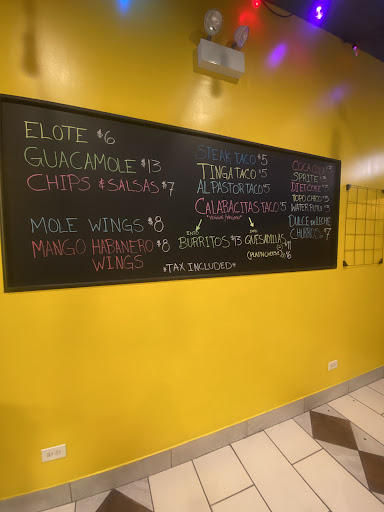 ELOTE $6
GUACAMOLE $13
CHIPS & SALSAS $7
MOLE WINGS $8
MANGO HABANERO $8
WINGS
STEAK TACO $5
TINGA TACO $5
AL PASTOR TACO $5
CALABACITAS TACO $5
INTO
BURRITOS $13
INTO
QUESADILLAS
(PLAIN CHEESE)
*TAX INCLUDED*
COCA COLA $3
SPRITE $3
DIET COKE $3
TOPO CHICO $5
WATER
DULCE de LECHE
CHURROS $7